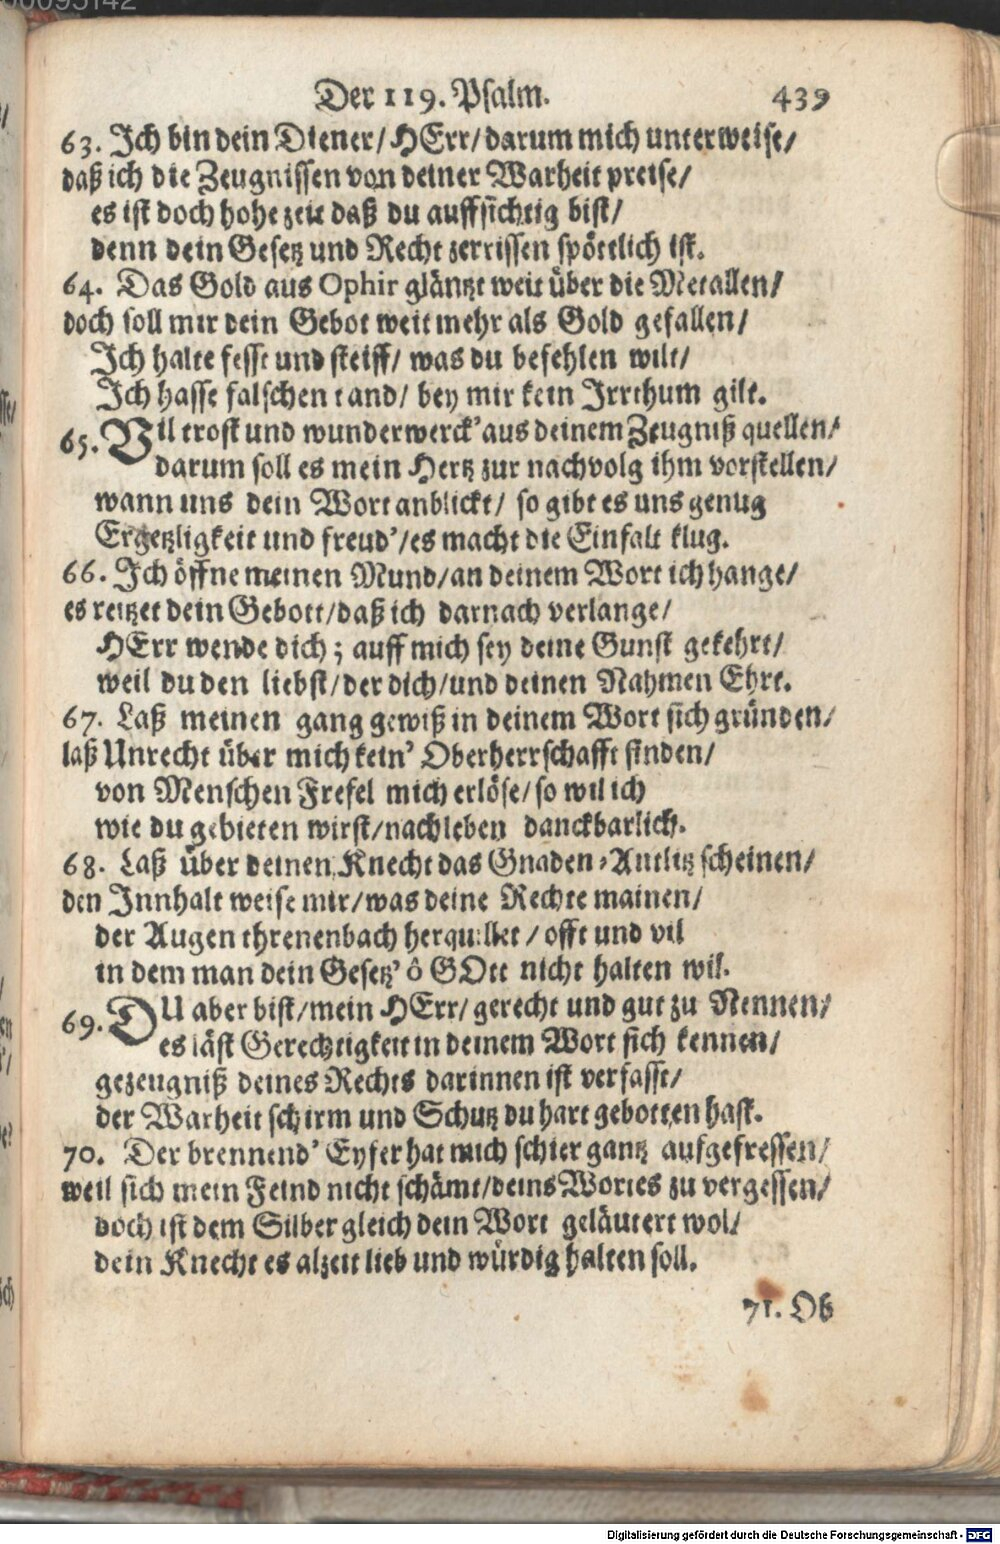 Der 119. Psalm. 439
63. Ich bin dein Diener/ HErr/ darum mich unterweise/
daß ich die Zeugnissen von deiner Warheit preise/
es ist doch hohe zeit daß du auffsichtig bist/
denn dein Gesetz und Recht zerrissen spöttlich ist.
64. Das Gold aus Ophir gläntzt weit über die Metallen/
doch soll mir dein Gebot weit mehr als Gold gefallen/
Ich halte fesst und steiff/ was du befehlen wilt/
Ich hasse falschen tand/ bey mir kein Irrthum gilt.
65. Vil trost und wunderwerck' aus deinem Zeugniß quellen/
darum soll es mein Hertz zur nachvolg ihm vorstellen/
wann uns dein Wort anblickt/ so gibt es uns genug
Ergetzligkeit und freud'/ es macht die Einfalt klug.
66. Ich öffne meinen Mund/ an deinem Wort ich hange/
es reitzet dein Gebott/ daß ich darnach verlange/
HErr wende dich; auff mich sey deine Gunst gekehrt/
weil du den liebst/ der dich/ und deinen Nahmen Ehrt.
67. Laß meinen gang gewiß in deinem Wort sich gründen/
laß Unrecht über mich kein' Oberherrschafft finden/
von Menschen Frefel mich erlöse/ so wil ich
wie du gebieten wirst/ nachleben danckbarlich.
68. Laß über deinen Knecht das Gnaden-Antlitz scheinen/
den Innhalt weise mir/ was deine Rechte mainen/
der Augen threnenbach herquillet/ offt und vil
in dem man dein Gesetz' ô GOtt nicht halten wil.
69. DU aber bist/ mein HErr/ gerecht und gut zu Nennen/
es läst Gerechtigkeit in deinem Wort sich kennen/
gezeugniß deines Rechts darinnen ist verfasst/
der Warheit schirm und Schutz du hart gebotten hast.
70. Der brennend' Eyfer hat mich schier gantz aufgefressen/
weil sich mein Feind nicht schämt/ deins Wortes zu vergessen/
doch ist dem Silber gleich dein Wort geläutert wol/
dein Knecht es alzeit lieb und würdig halten soll.
71. Ob
Digitalisierung gefördert durch die Deutsche Forschungsgemeinschaft - DFG